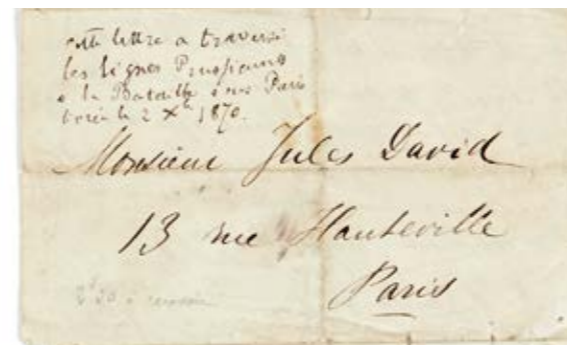 cette lettre a traversé
les lignes Prussiennes
à la Bataille sous Paris
le 2 Xbre 1870.
Monsieur Jules David
13 rue Hauteville
Paris